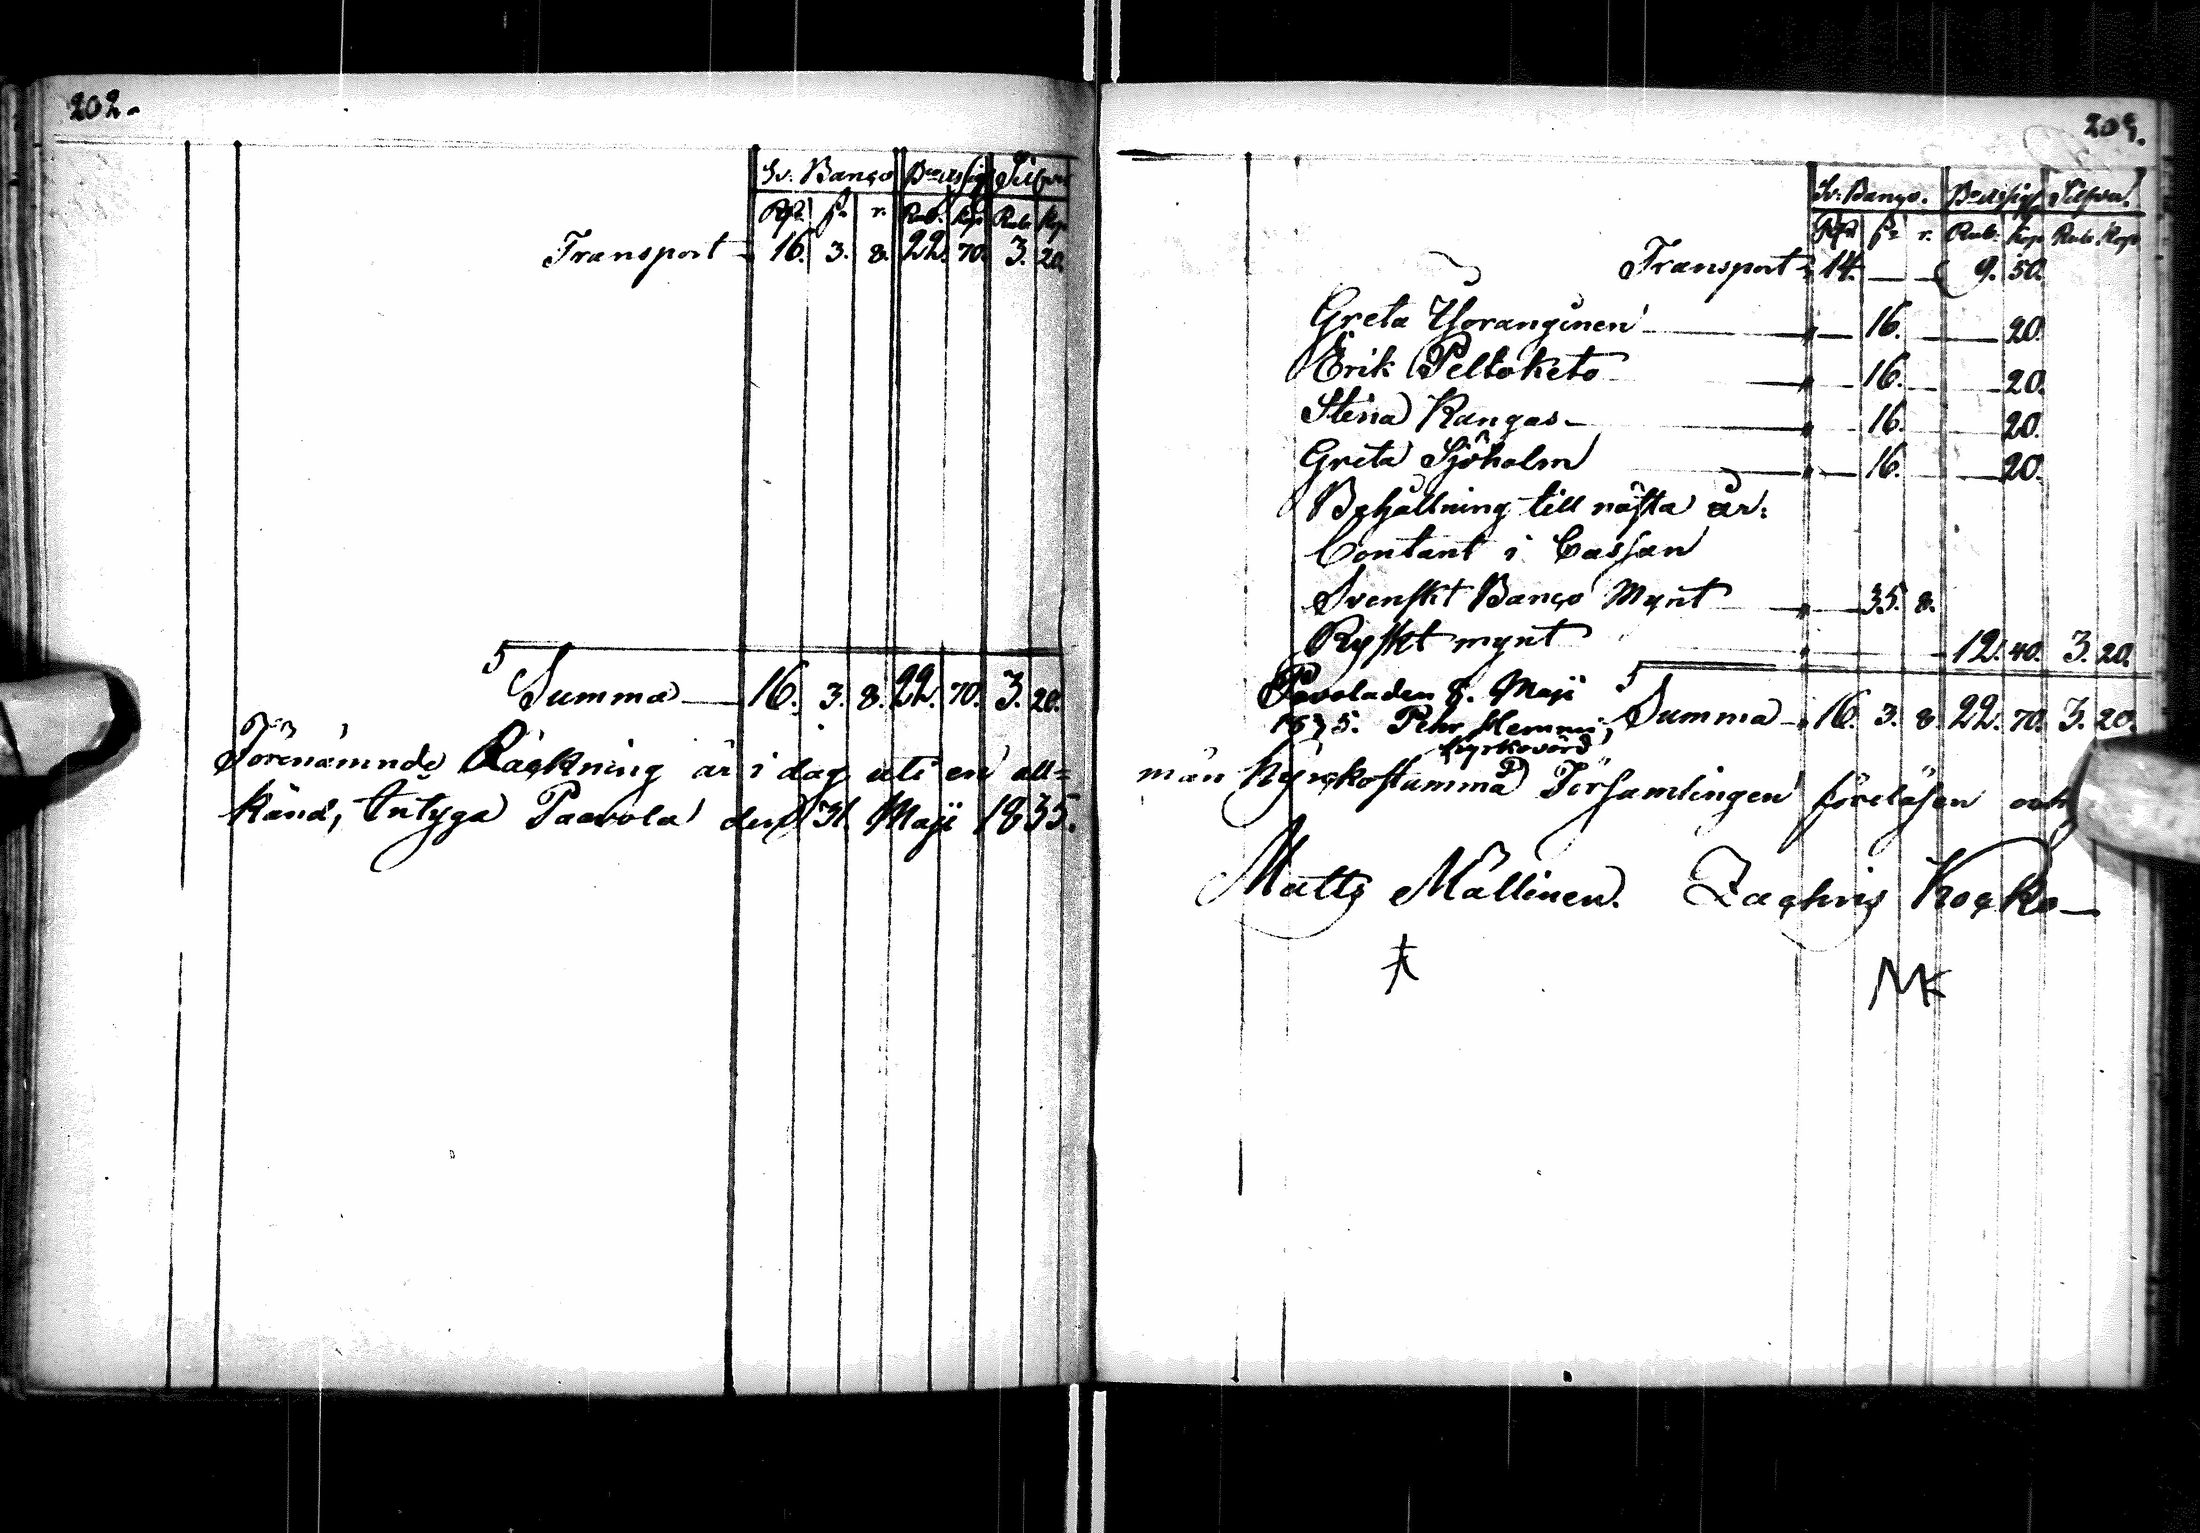 202.
Sv: Banco Bco Assig Silfver
Rd f. r. Rub. Kop Rub. Kop
Transport 16. 3. 8. 22. 70. 3. 20.
Summa 16. 3. 8. 22. 70. 3. 20.
Förenämnde Räckning är i dag uti en all=
känd, Intyga Paavola den 31. Maji 1835.
203.
Sv: Banco. Bco Assig Silfver.
Rd f. r. Rub. Kop Rub. Kop
Transport 14. 9. 50.
Greta Yoranginen 16. 20.
Erik Peltoketo 16. 20.
Stina Kangas 16. 20.
Greta Sjöholm 16. 20.
Behållning till nästa år:
Contant i Cassan
Svenskt Banco Mynt 35. 8.
Ryskt mynt 12. 40. 3. 20.
Pavola den 8. Maji
1835. Pehr Hemmi, Summa 16. 3. 8. 22. 70. 3. 20.
Kyrkovärd
män Kyrckostämma Församlingen föreläsen och
Matts Mällinen. Zachris Kocko
MK